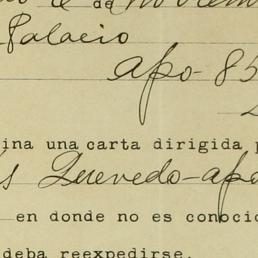 de Noviem
Palacio
Apo- 85
ina una carta dirigida p
s Quevedo-apo
en donde no es conocid
deba reexpedirse.